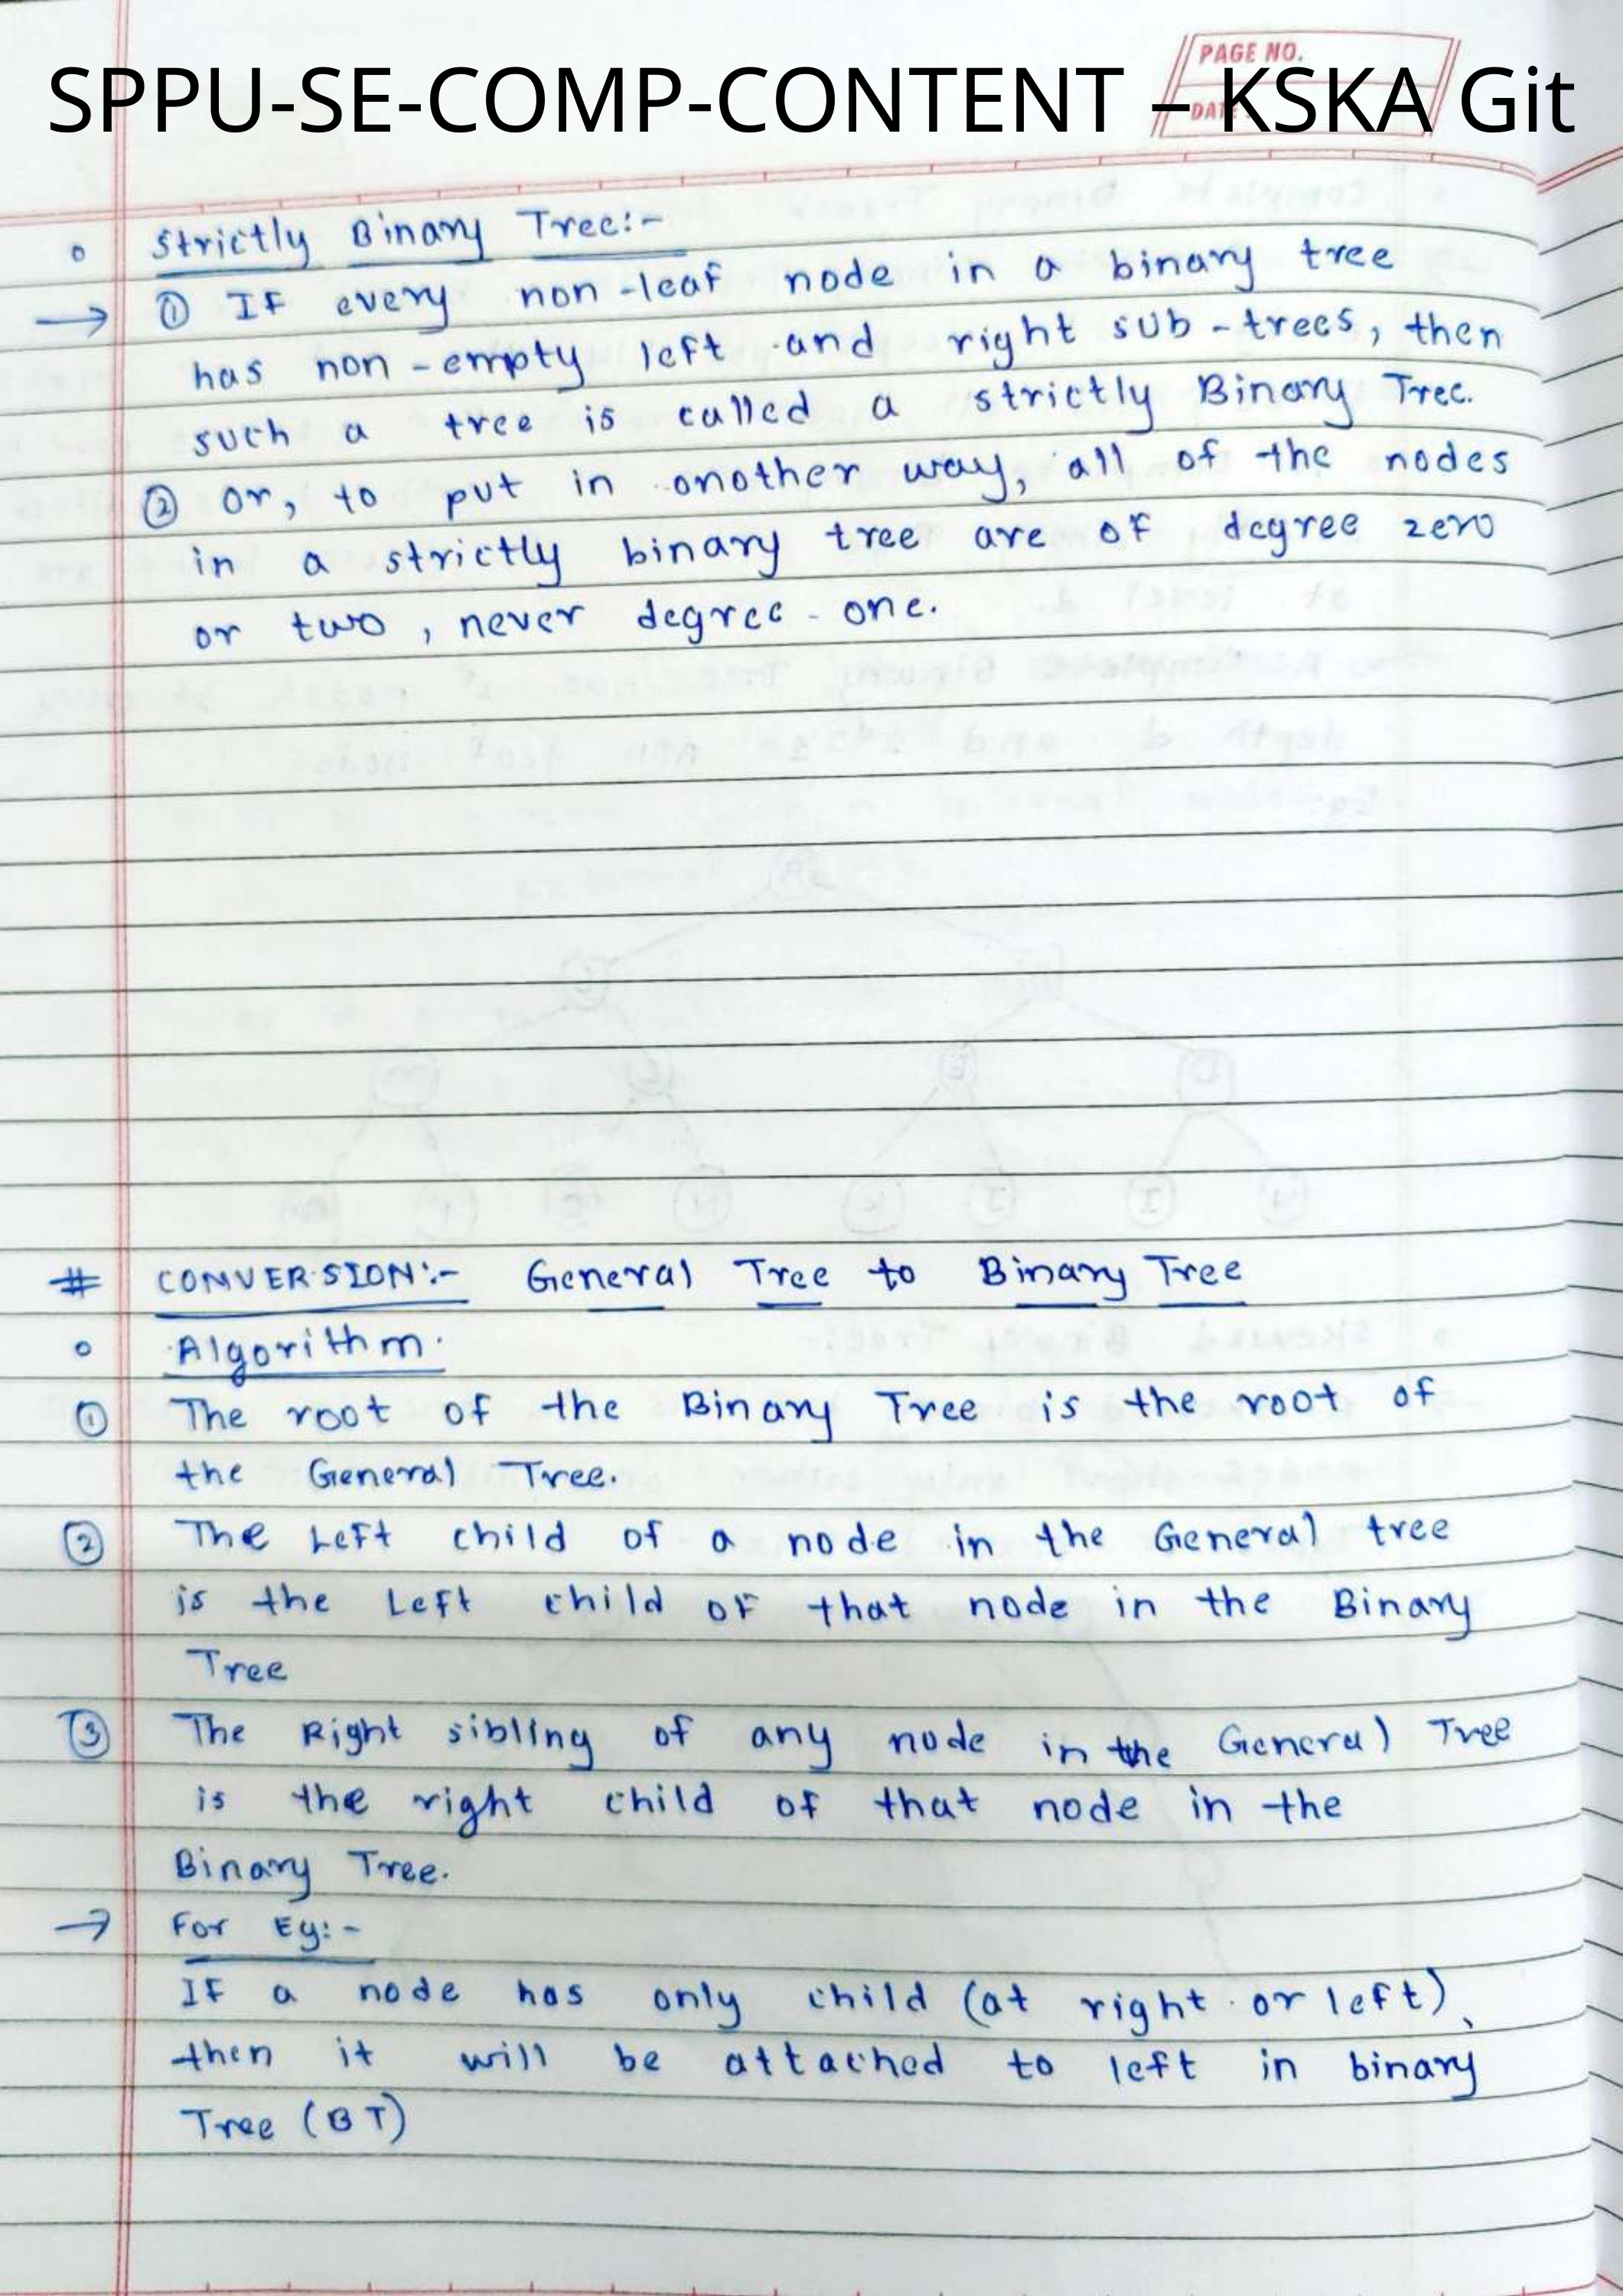 PAGE NO.
SPPU-SE-COMP-CONTENT – KSKA Git
DATE
o Strictly Binary Tree:-
→ ① IF every non-leaf node in a binary tree
has non-empty left and right sub-trees, then
such a tree is called a strictly Binary Tree.
② or, to put in another way, all of the nodes
in a strictly binary tree are of degree zero
or two, never degree-one.
# CONVERSION:- General Tree to Binary Tree
o Algorithm.
① The root of the Binary Tree is the root of
the General Tree.
② The Left child of a node in the General tree
is the Left child of that node in the Binary
Tree
③ The Right sibling of any node in the General Tree
is the right child of that node in the
Binary Tree.
→ For Eg:-
IF a node has only child (at right or left),
then it will be attached to left in binary
Tree (BT)